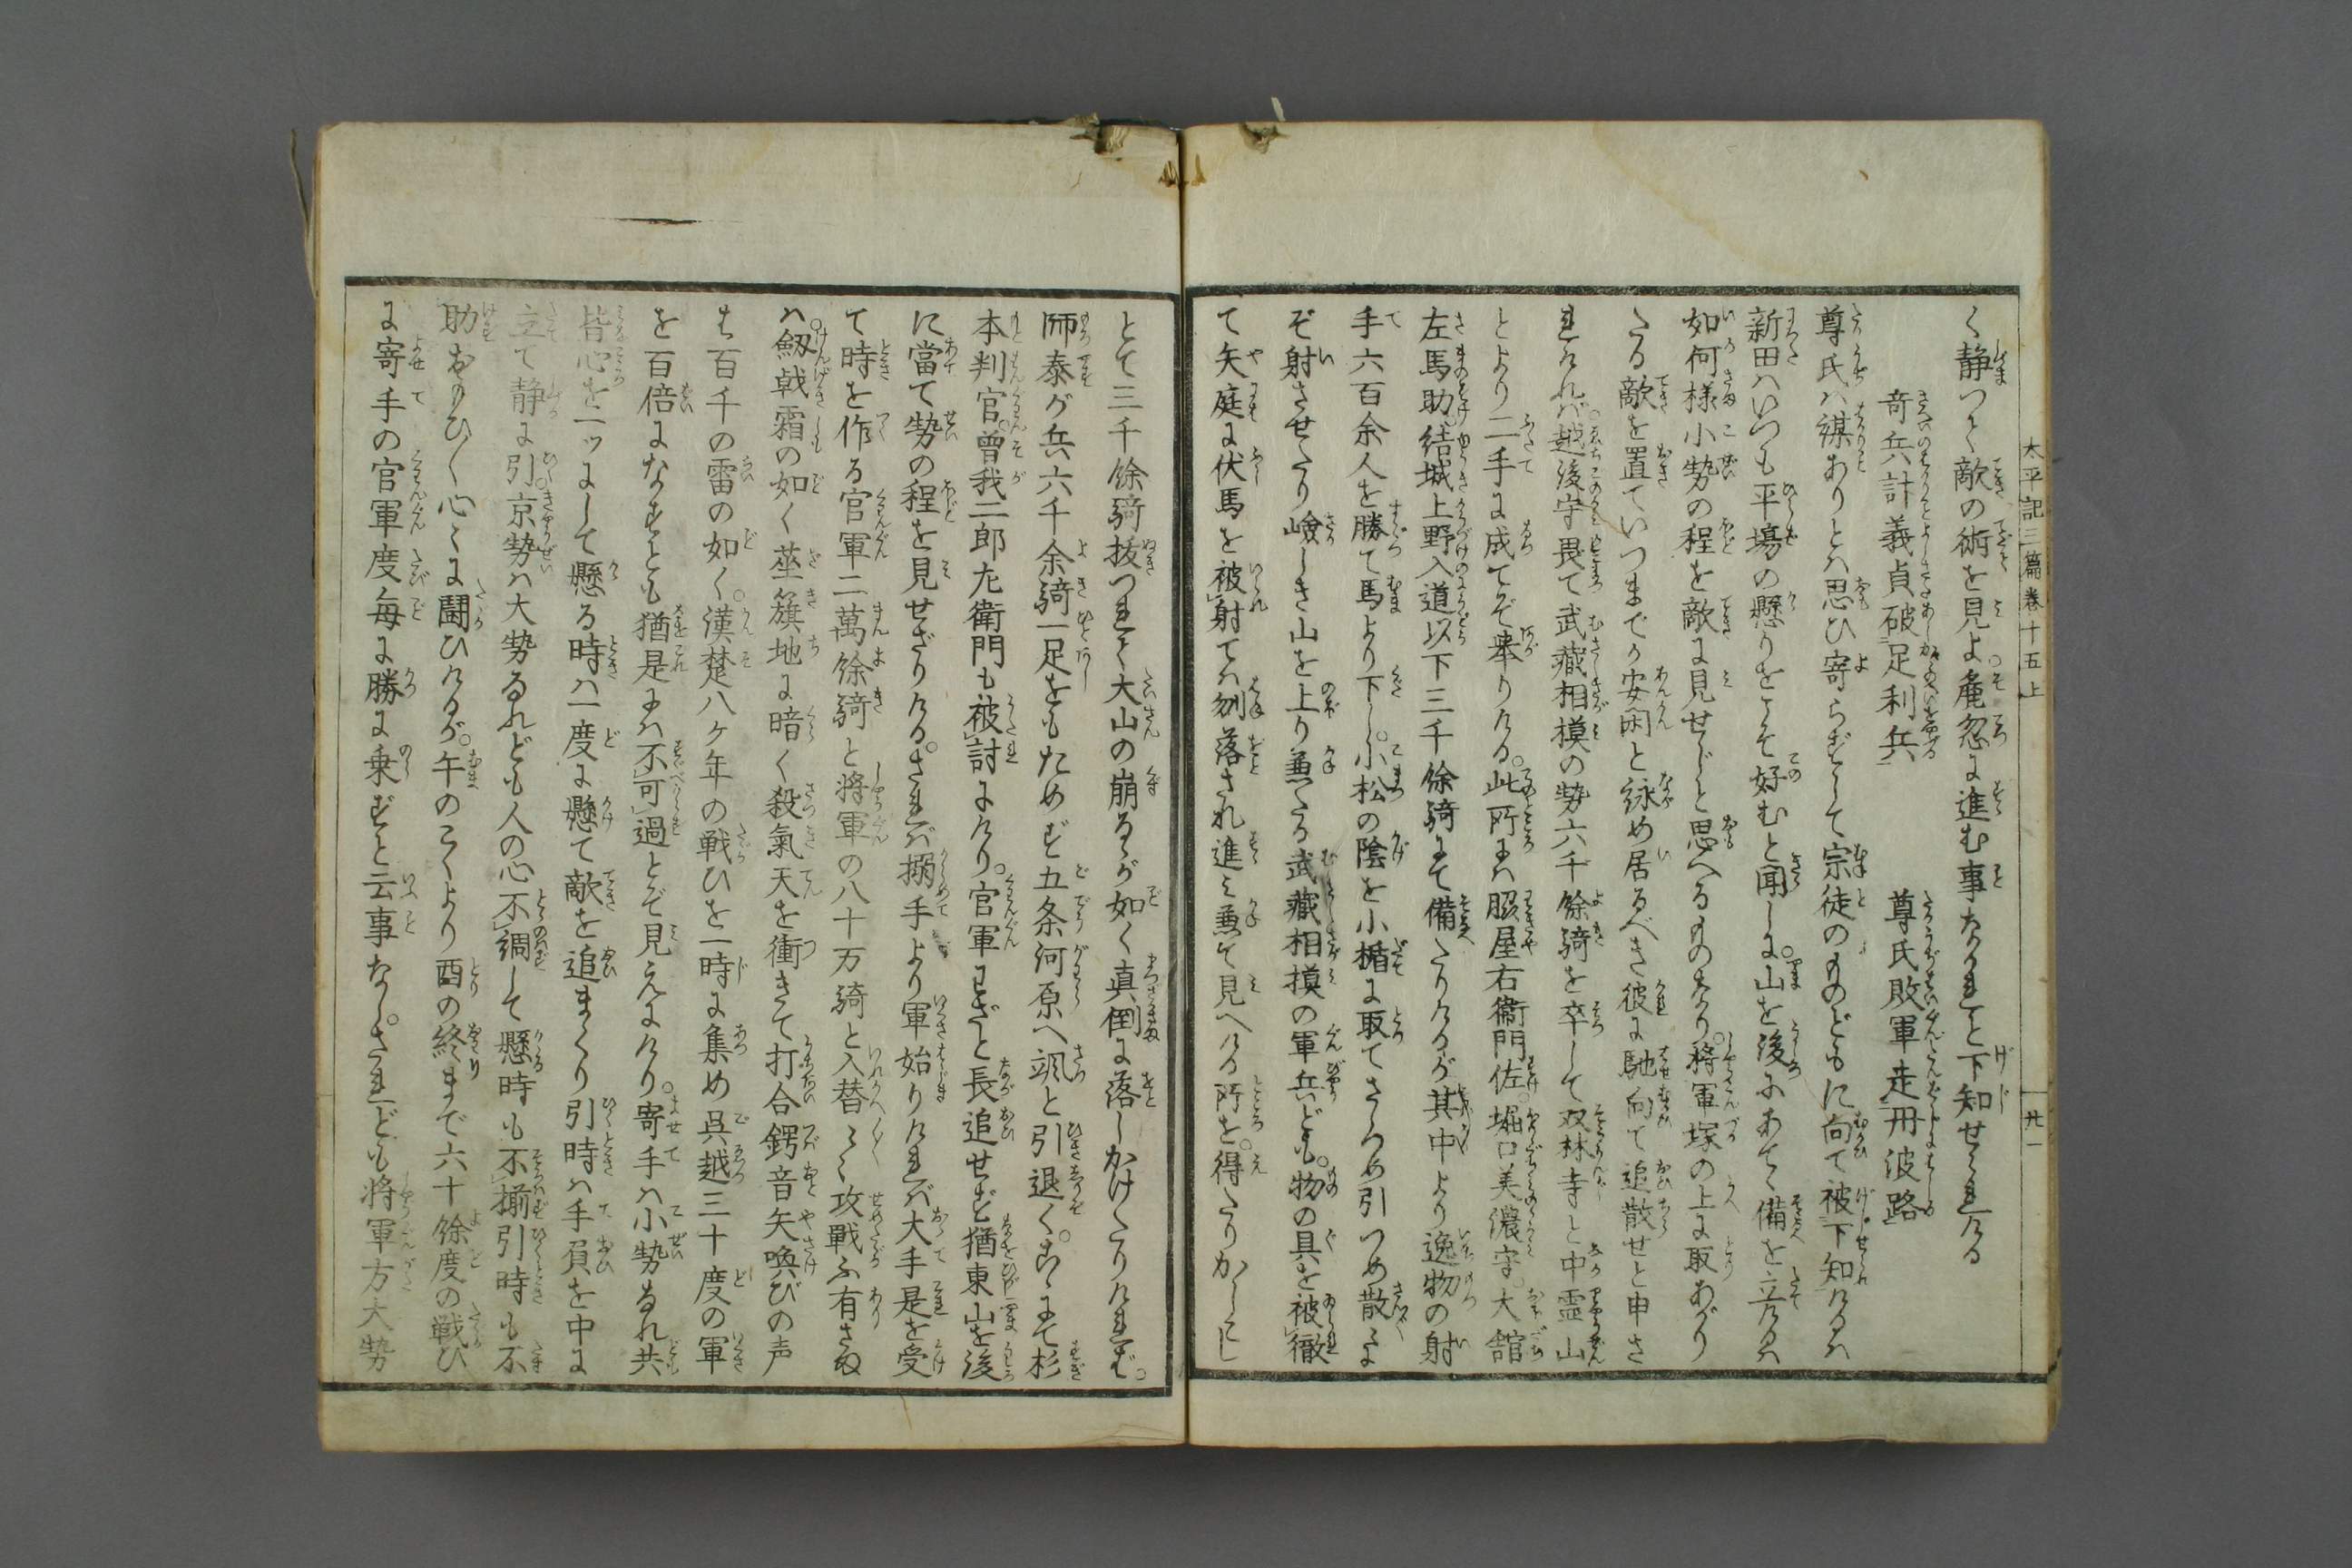 く静つて敵の術を見よ。麁忽に進む事なかれと下知せられける
奇兵計義貞破足利兵　尊氏敗軍走丹波路
尊氏ハ謀ありとハ思ひ寄らずして宗徒のものどもに向て被下知けるハ
新田ハいつも平場の懸りをこそ好むと聞しに。山を後ふあてゝ備を立けるハ
如何様小勢の程を敵に見せじと思へるものなり。将軍塚の上に取あがり
たる敵を置ていつまでか安閑と詠め居るべき彼に馳向て追散せと申さ
れければ。越後守畏て武藏相摸の勢六千餘騎を卒して双林寺と中霊山
とより二手に成てぞ挙りける。此所にハ脇屋右衛門佐。堀口美濃守。大舘
左馬助。結城上野入道以下三千餘騎にて備たりけるが其中より逸物の射
手六百余人を勝て馬より下し。小松の陰を小楯に取てさしつめ引つめ散々に
ぞ射させたり嶮しき山を上り兼たる武藏相摸の軍兵ども。物の具を被徹
て矢庭に伏馬を被射てハ刎落され進ミ兼て見へける所を。得たりかしこし
太平記三篇卷十五上
廿一
とて三千餘騎抜つれて大山の崩るが如く真倒に落しかけたりければ。
師泰が兵六千余騎一足をもためず五条河原へ颯と引退く。爰にて杉
本判官。曽我二郎左衛門も被討にけり。官軍わざと長追せず猶東山を後
に當て勢の程を見せざりける。されば搦手より軍始りければ大手是を受
て時を作る官軍二萬餘騎と将軍の八十万騎と入替〳〵攻戰ふ有さま
ハ。劔戟霜の如く莖簱地に暗く殺氣天を衝きて打合鍔音矢喚びの声
ハ百千の雷の如く。漢楚八ケ年の戦ひを一時に集め呉越三十度の軍
を百倍になすとも猶是にハ不可過とぞ見えにけり。寄手ハ小勢なれ共
皆心を一ッにして懸る時ハ一度に懸て敵を追まくり引時ハ手負を中に
立て静に引。京勢ハ大勢なれども人の心不綢して懸時も不揃引時も不
助おのひく心々に鬪ひけるが。午のこくより酉の終まで六十餘度の戦ひ
に寄手の官軍度毎に勝に乗ずと云事なし。されども将軍方大勢